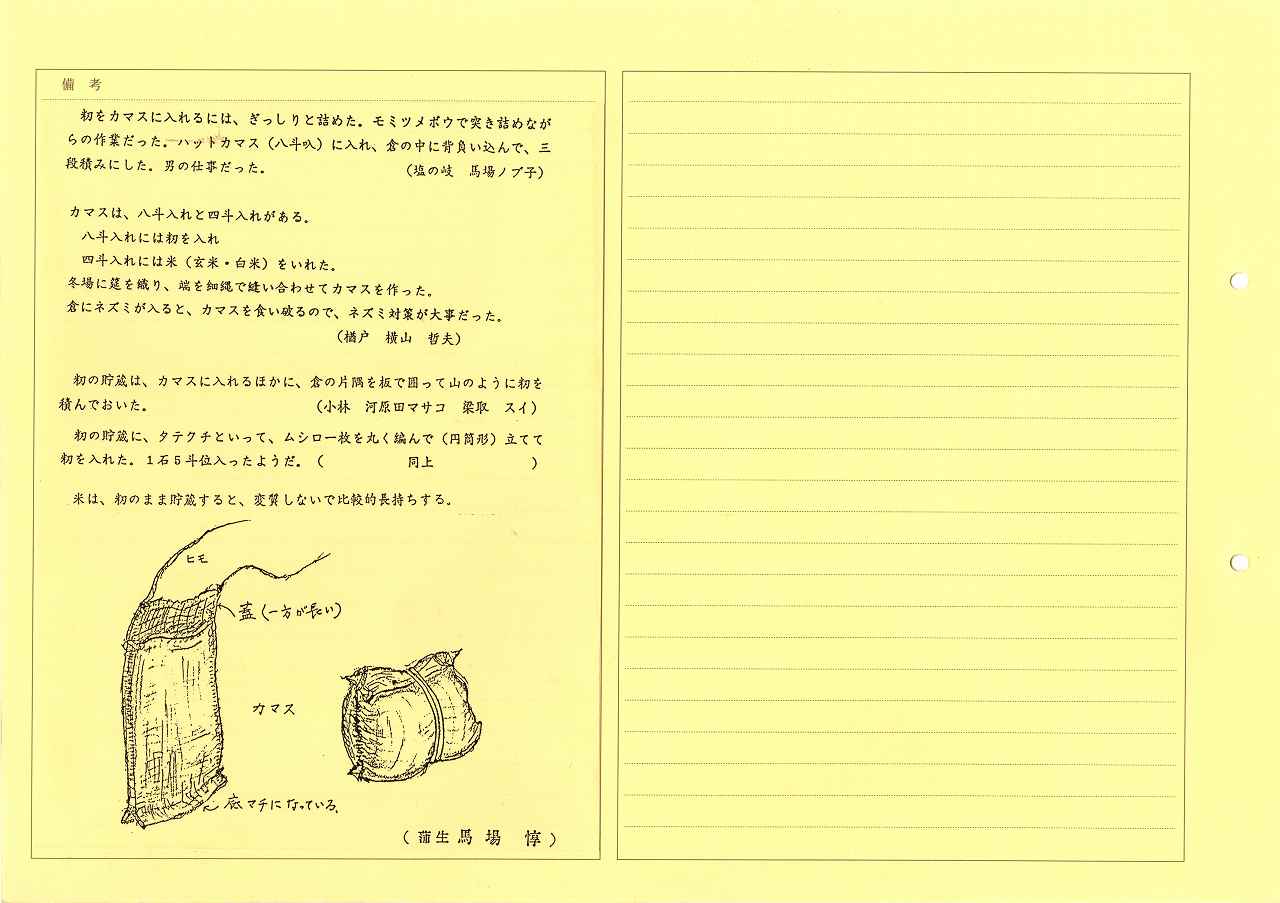 備考
籾をカマスに入れるには、ぎっしりと詰めた。モミツメボウで突き詰めなが
らの作業だった。ハットカマス（八斗叺）に入れ、倉の中に背負い込んで、三
段積みにした。男の仕事だった。（塩の岐　馬場ノブ子）
カマスは、八斗入れと四斗入れがある。
八斗入れには籾を入れ
四斗入れには米（玄米・白米）をいれた。
冬場に筵を織り、端を細縄で縫い合わせてカマスを作った。
倉にネズミが入ると、カマスを食い破るので、ネズミ対策が大事だった。
（楢戸　横山　哲夫）
籾の貯蔵は、カマスに入れるほかに、倉の片隅を板で囲って山のように籾を
積んでおいた。（小林　河原田マサコ　梁取　スイ）
籾の貯蔵に、タテクチといって、ムシロ一枚を丸く編んで（円筒形）立てて
籾を入れた。１石５斗位入ったようだ。（　同上　）
米は、籾のまま貯蔵すると、変質しないで比較的長持ちする。
ヒモ
蓋（一方が長い）
カマス
底マチになっている。
（蒲生 馬場　惇）